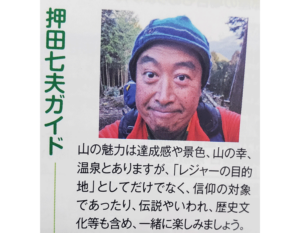 押田七夫ガイド
山の魅力は達成感や景色、山の幸、
温泉とありますが、「レジャーの目的
地」としてだけでなく、信仰の対象
であったり、伝説やいわれ、歴史文
化等も含め、一緒に楽しみましょう。